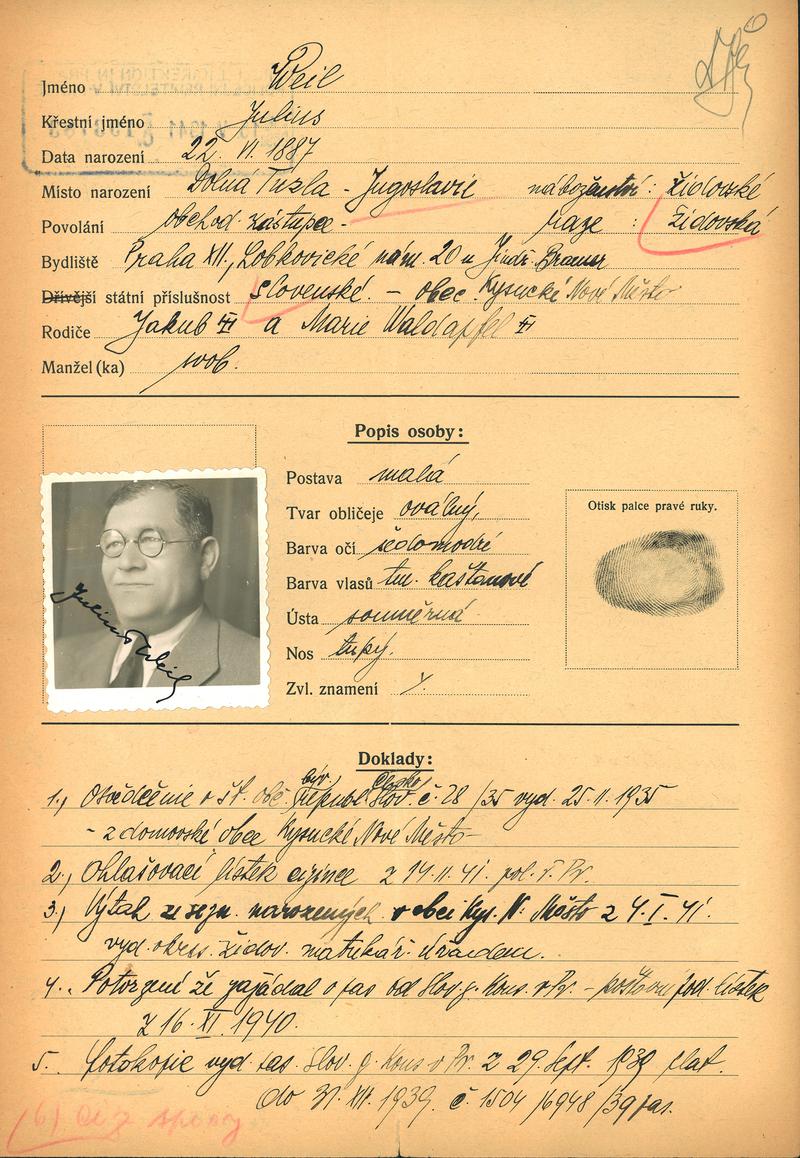 Jméno Weil
Křestní jméno Julius
Data narození 22. VI. 1887
Místo narození Dolná Tuzla - Jugoslavie náboženství : židovské
Povolání obchod. zástupce - rase : židovská
Bydliště Praha XII., Lobkovické nám. 20 u Jindř. Bramer
Dřívější státní příslušnost slovenské. - obec Kysucké Nové Město
Rodiče Jakub a Marie Waldapfel
Manžel (ka) svob.
Popis osoby:
Postava malá
Tvar obličeje oválný,
Barva očí šedomodré
Barva vlasů tm. kaštanové
Ústa souměrná
Nos tupý.
Zvl. znamení
Otisk palce pravé ruky.
Julius Weil
Doklady:
1., Osvědčenie o št. obč. býv. Česko
republ. Slov. č. 28 /35 vyd. 25. II. 1935
- z domovské obce Kysucké Nové Město -
2., Ohlašovací lístek cizince z 14. II. 41. pol. ř. Pr.
3., Výtah ze sezn. narozených v obci Kys. N. Město z 4. I. 41.
vyd. okres. židov. matrikář. úřadem.
4.. Potvrzení že zažádal o pas od Slov. g. Kons. v Pr. - poštovní pod. lístek
z 16. XI. 1940.
5. fotokopie vyd. pas. Slov. g. Kons v Pr. z 29. Sept. 1939 plat.
do 31. XII. 1939. č. 1504 /6948 /39 pas.
6)